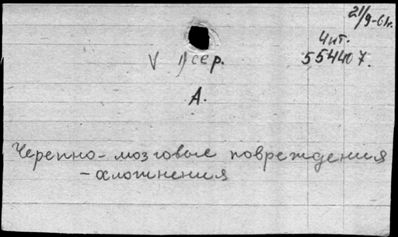 21/9-61г.
Чит.
554407.
V 1) сер.
А.
Черепно-мозговые повреждения
- осложнения